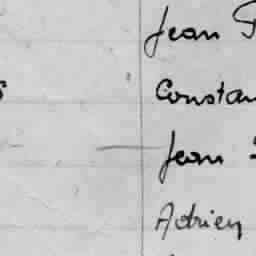 Jean
Constan
Jean
Adrien